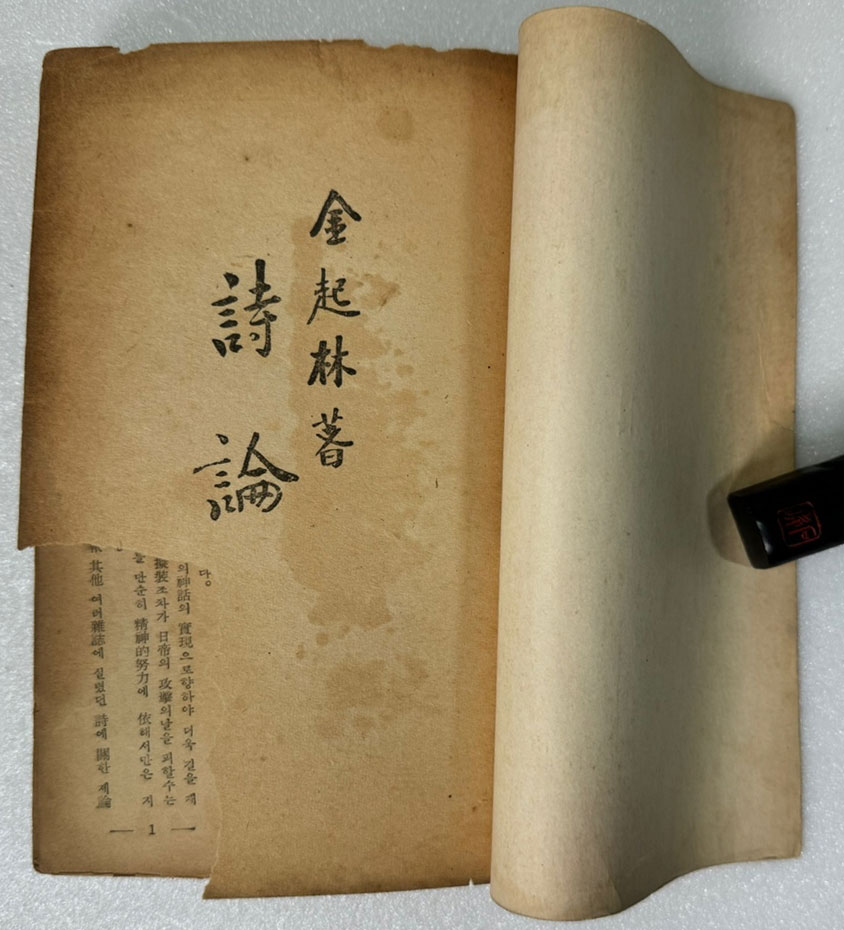 金起林著
詩論
다。
의神話의 實現으로향하야 더욱 길을 재
擬裝조차가 日帝의 攻擊의날을 피할수는
를 단순히 精神的努力에 依해서만은 지
其他 여러雜誌에 실렸던 詩에 關한 제論
— 1 —